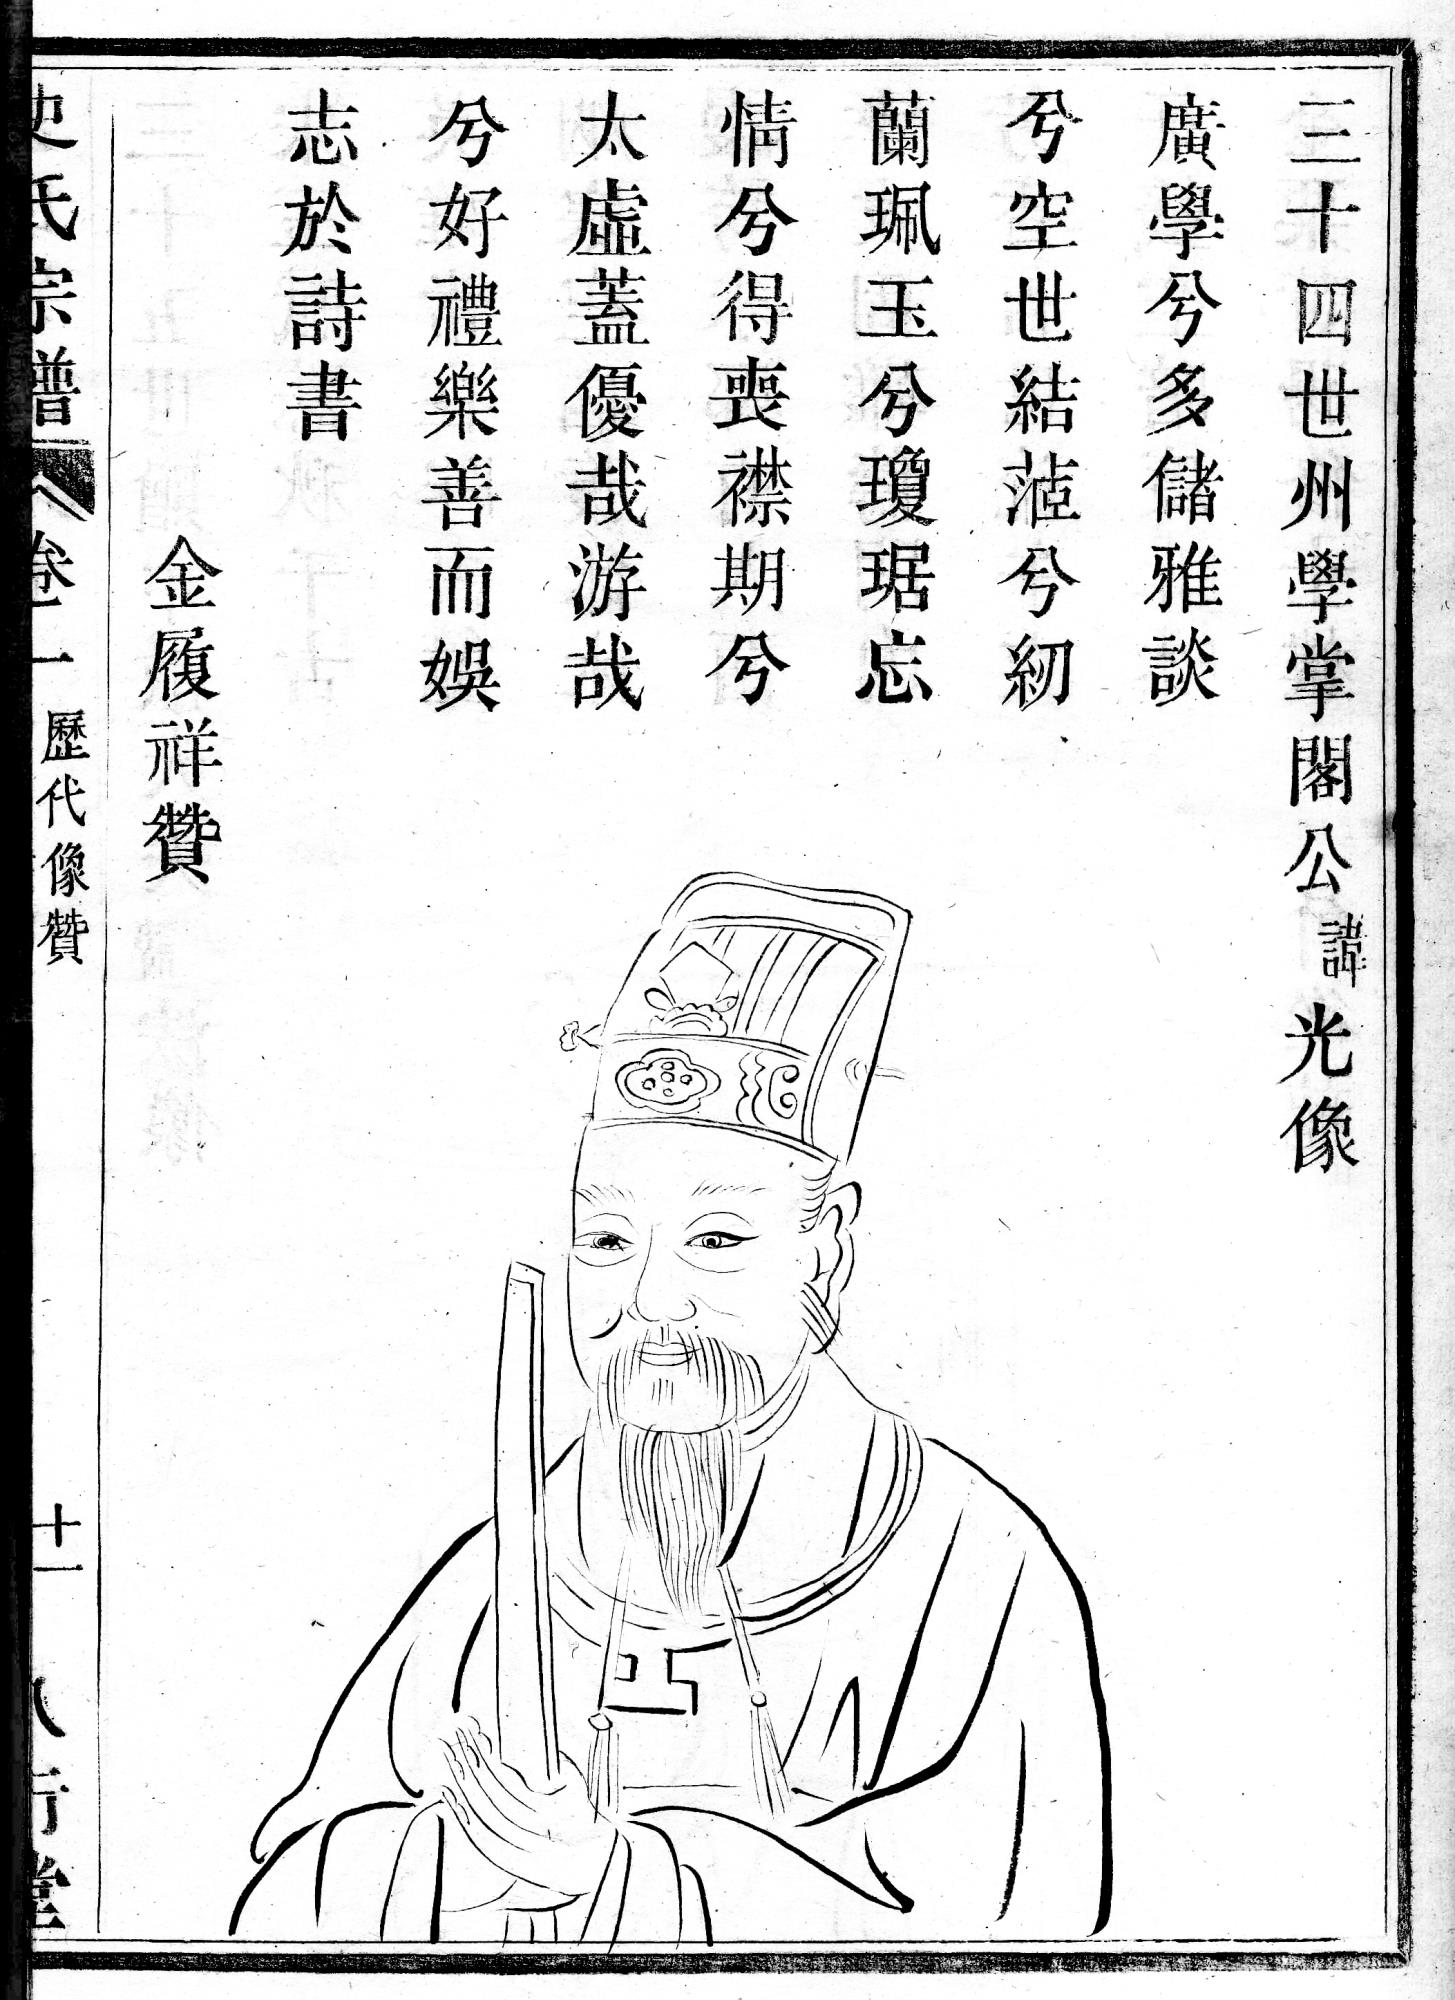 三十四世州學掌閣公諱光像
廣學兮多儲雅談
兮空世結茝兮紉
蘭珮玉兮瓊琚忘
情兮得喪襟期兮
太虛蓋優哉游哉
兮好禮樂善而娛
志於詩書
金履祥贊
史氏宗譜 卷一 歷代像贊 十一 八行堂